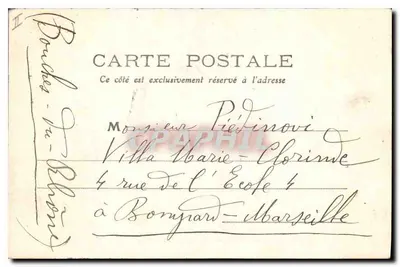 CARTE POSTALE
Ce côté est exclusivement réservé à l'adresse
Monsieur Piédinovi
Villa Marie-Clorinde
4 rue de l'Ecole 4
à Bompard-Marseille
(Bouches-du-Rhône)